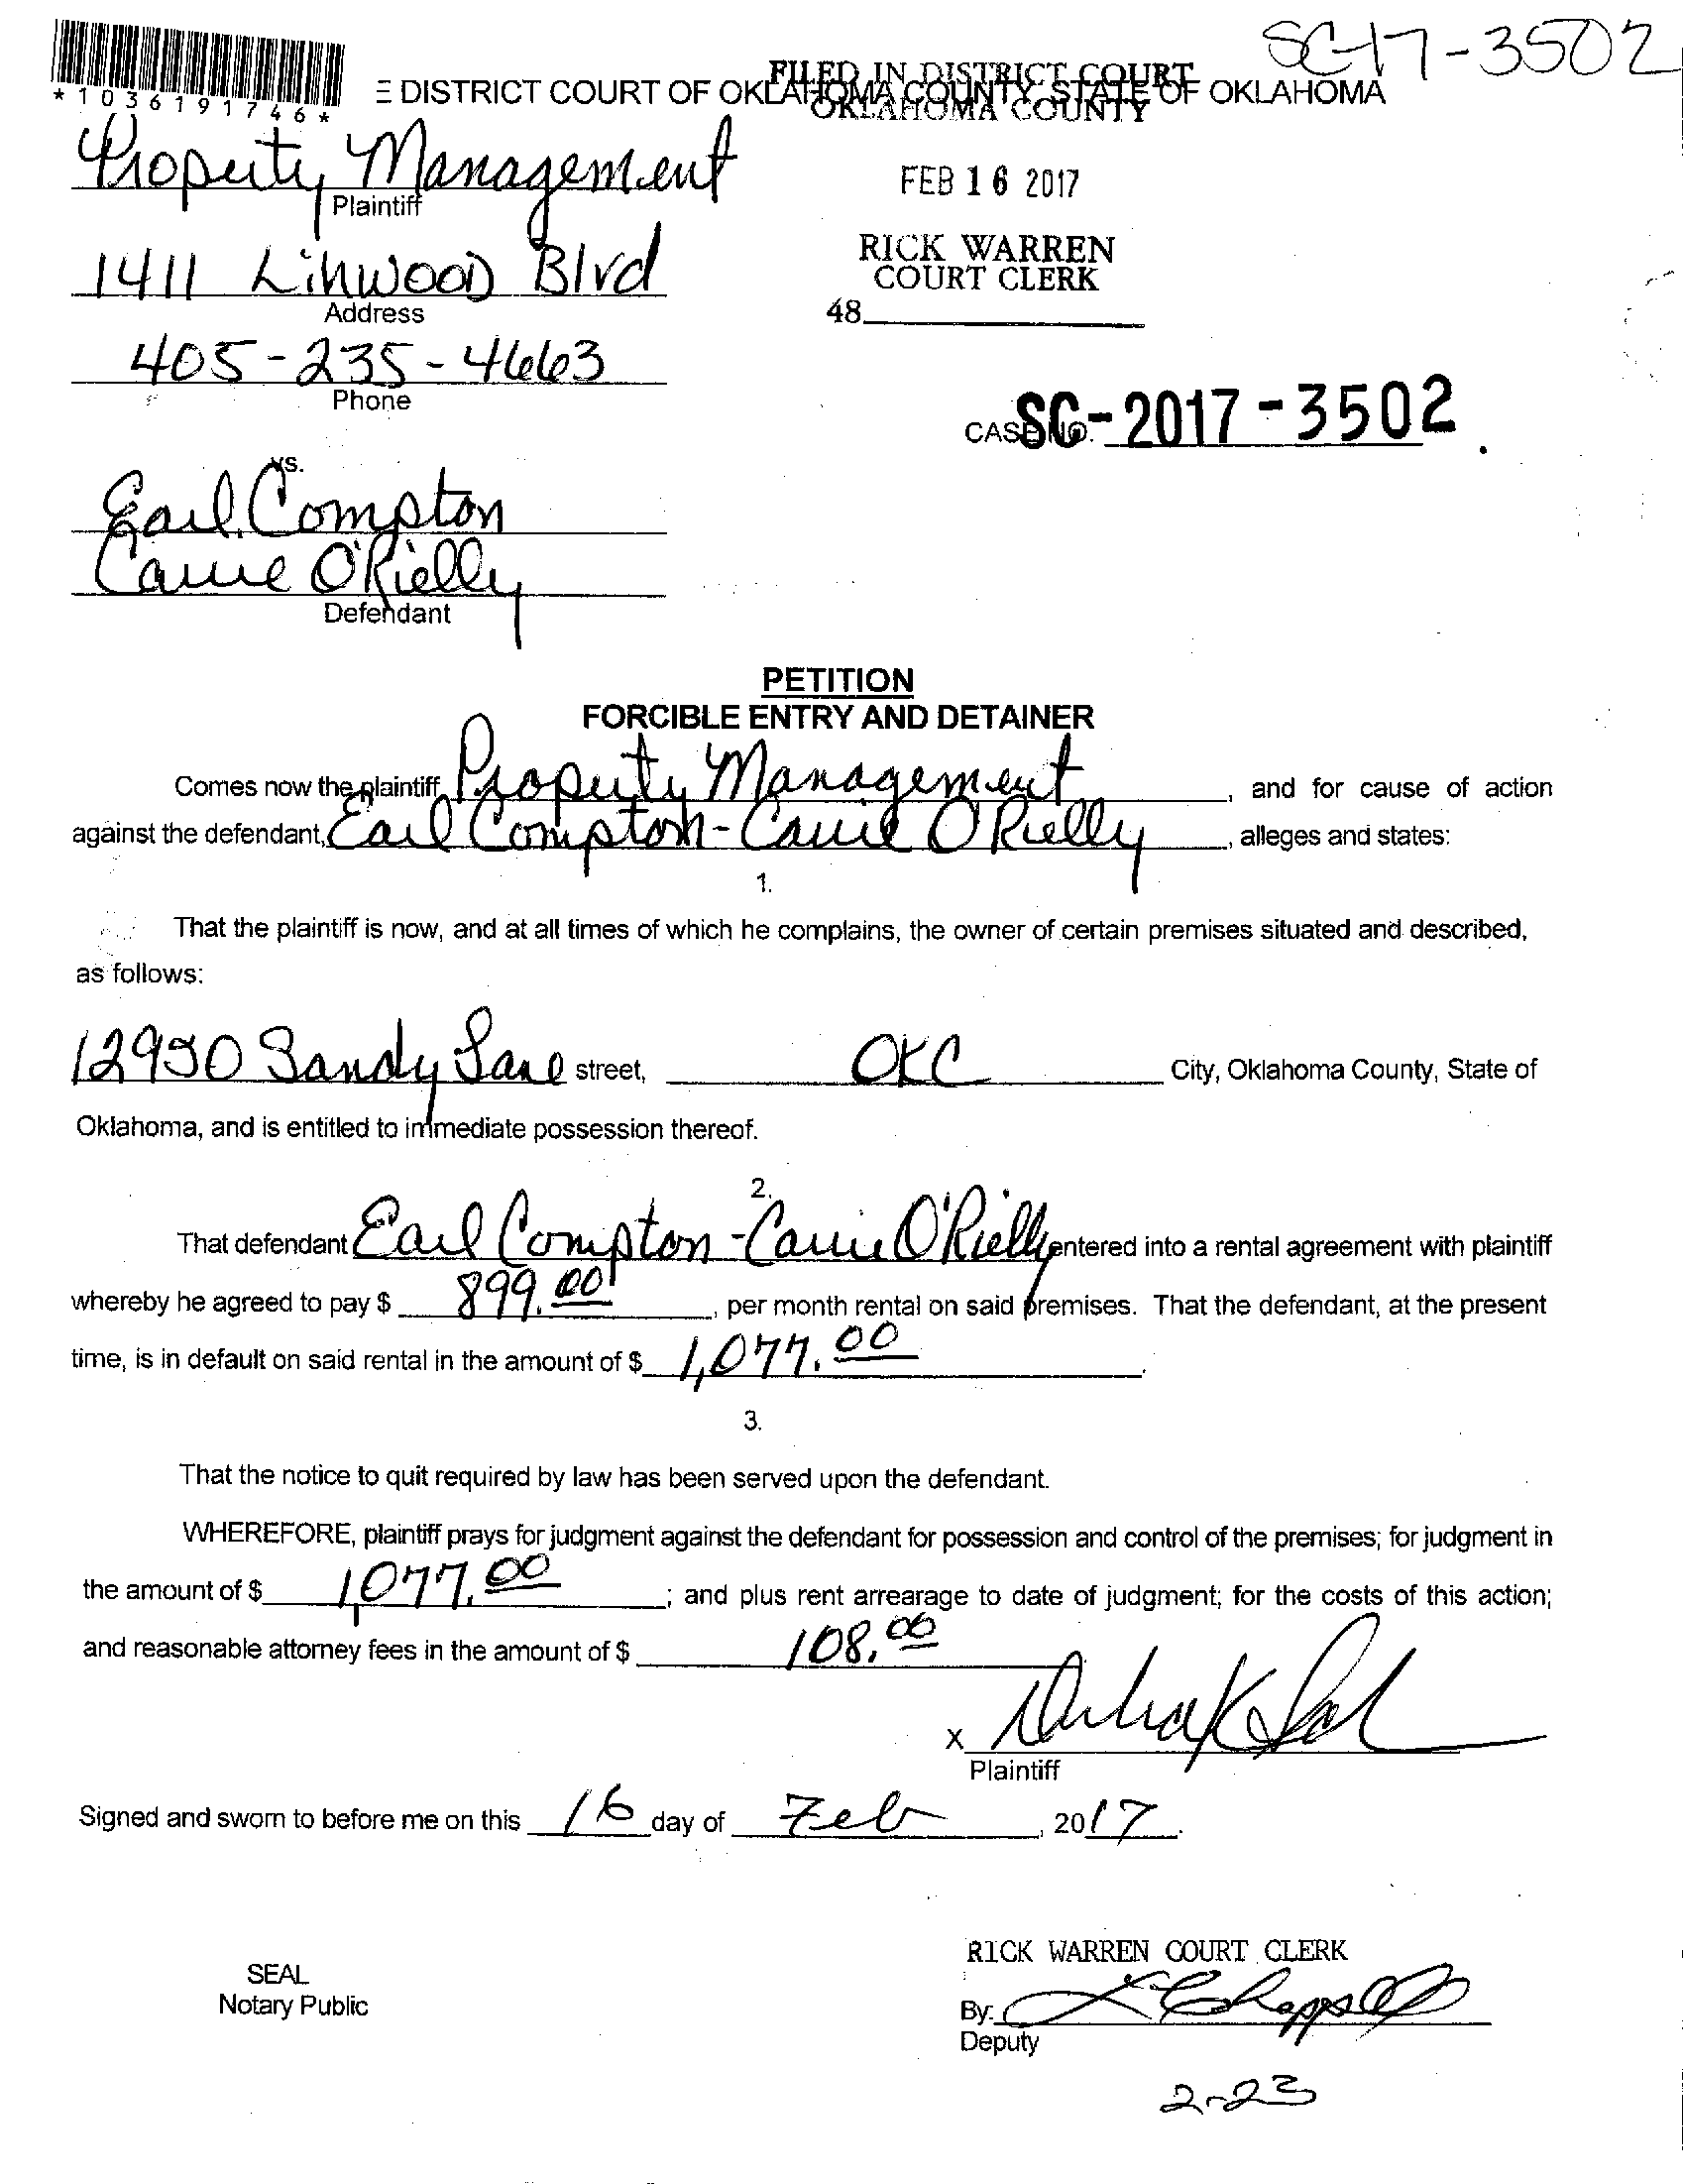 SC-17-3502
*1036191746*
E DISTRICT COURT OF OKLAHOMA COUNTY, STATE OF OKLAHOMA
FILED IN DISTRICT COURT
OKLAHOMA COUNTY
Property Management
Plaintiff
FEB 16 2017
RICK WARREN
COURT CLERK
48
1411 Linwood Blvd
Address
405-235-4663
Phone
CASE NO. SC-2017-3502
vs.
Earl Compton
Carrie O'Rielly
Defendant
PETITION
FORCIBLE ENTRY AND DETAINER
Comes now the plaintiff, Property Management, and for cause of action
against the defendant, Earl Compton-Carrie O'Rielly, alleges and states:
1.
That the plaintiff is now, and at all times of which he complains, the owner of certain premises situated and described,
as follows:
12930 Sandy Lane street, OKC City, Oklahoma County, State of
Oklahoma, and is entitled to immediate possession thereof.
2.
That defendant Earl Compton-Carrie O'Rielly entered into a rental agreement with plaintiff
whereby he agreed to pay $ 899.00, per month rental on said premises. That the defendant, at the present
time, is in default on said rental in the amount of $ 1,077.00.
3.
That the notice to quit required by law has been served upon the defendant.
WHEREFORE, plaintiff prays for judgment against the defendant for possession and control of the premises; for judgment in
the amount of $ 1,077.00; and plus rent arrearage to date of judgment; for the costs of this action;
and reasonable attorney fees in the amount of $ 108.00
X
Plaintiff
Signed and sworn to before me on this 16 day of Feb, 2017.
RICK WARREN COURT CLERK
SEAL
Notary Public
By:
Deputy
2-23